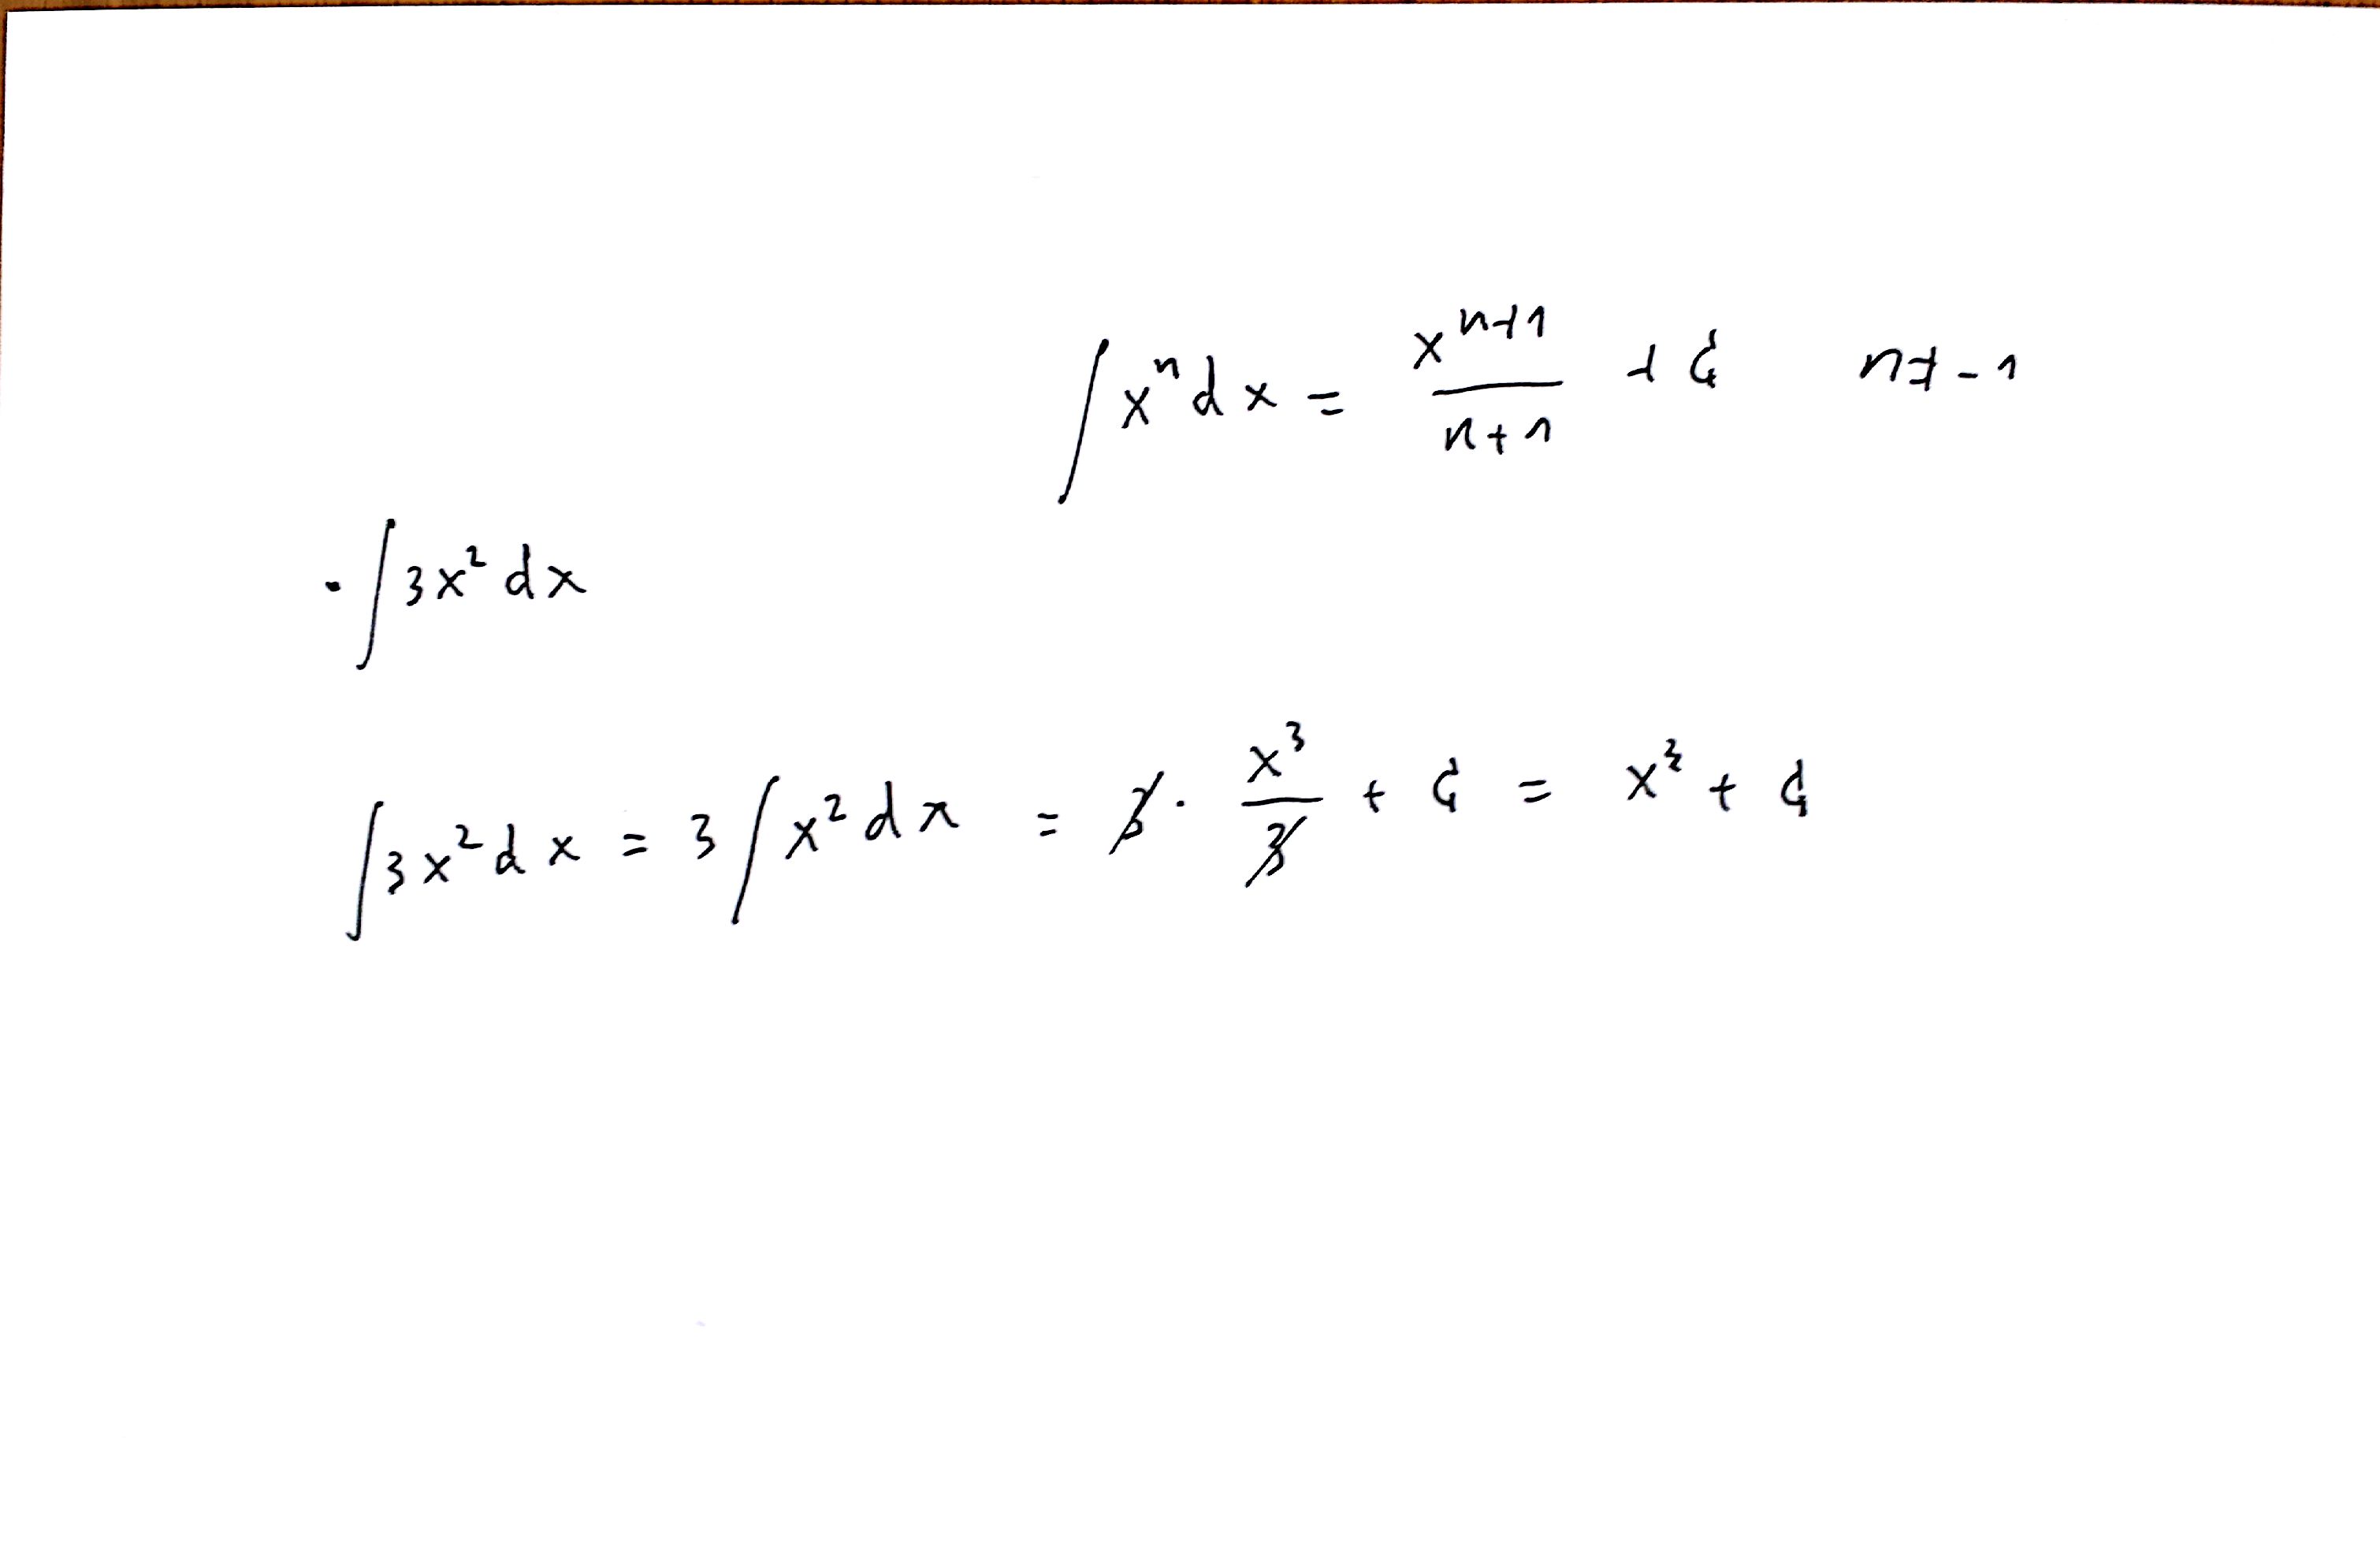 ∫ xⁿ dx = xⁿ⁺¹ / (n+1) + C n ≠ -1
· ∫ 3x² dx
∫ 3x² dx = 3 ∫ x² dx = 3 · x³/3 + C = x³ + C